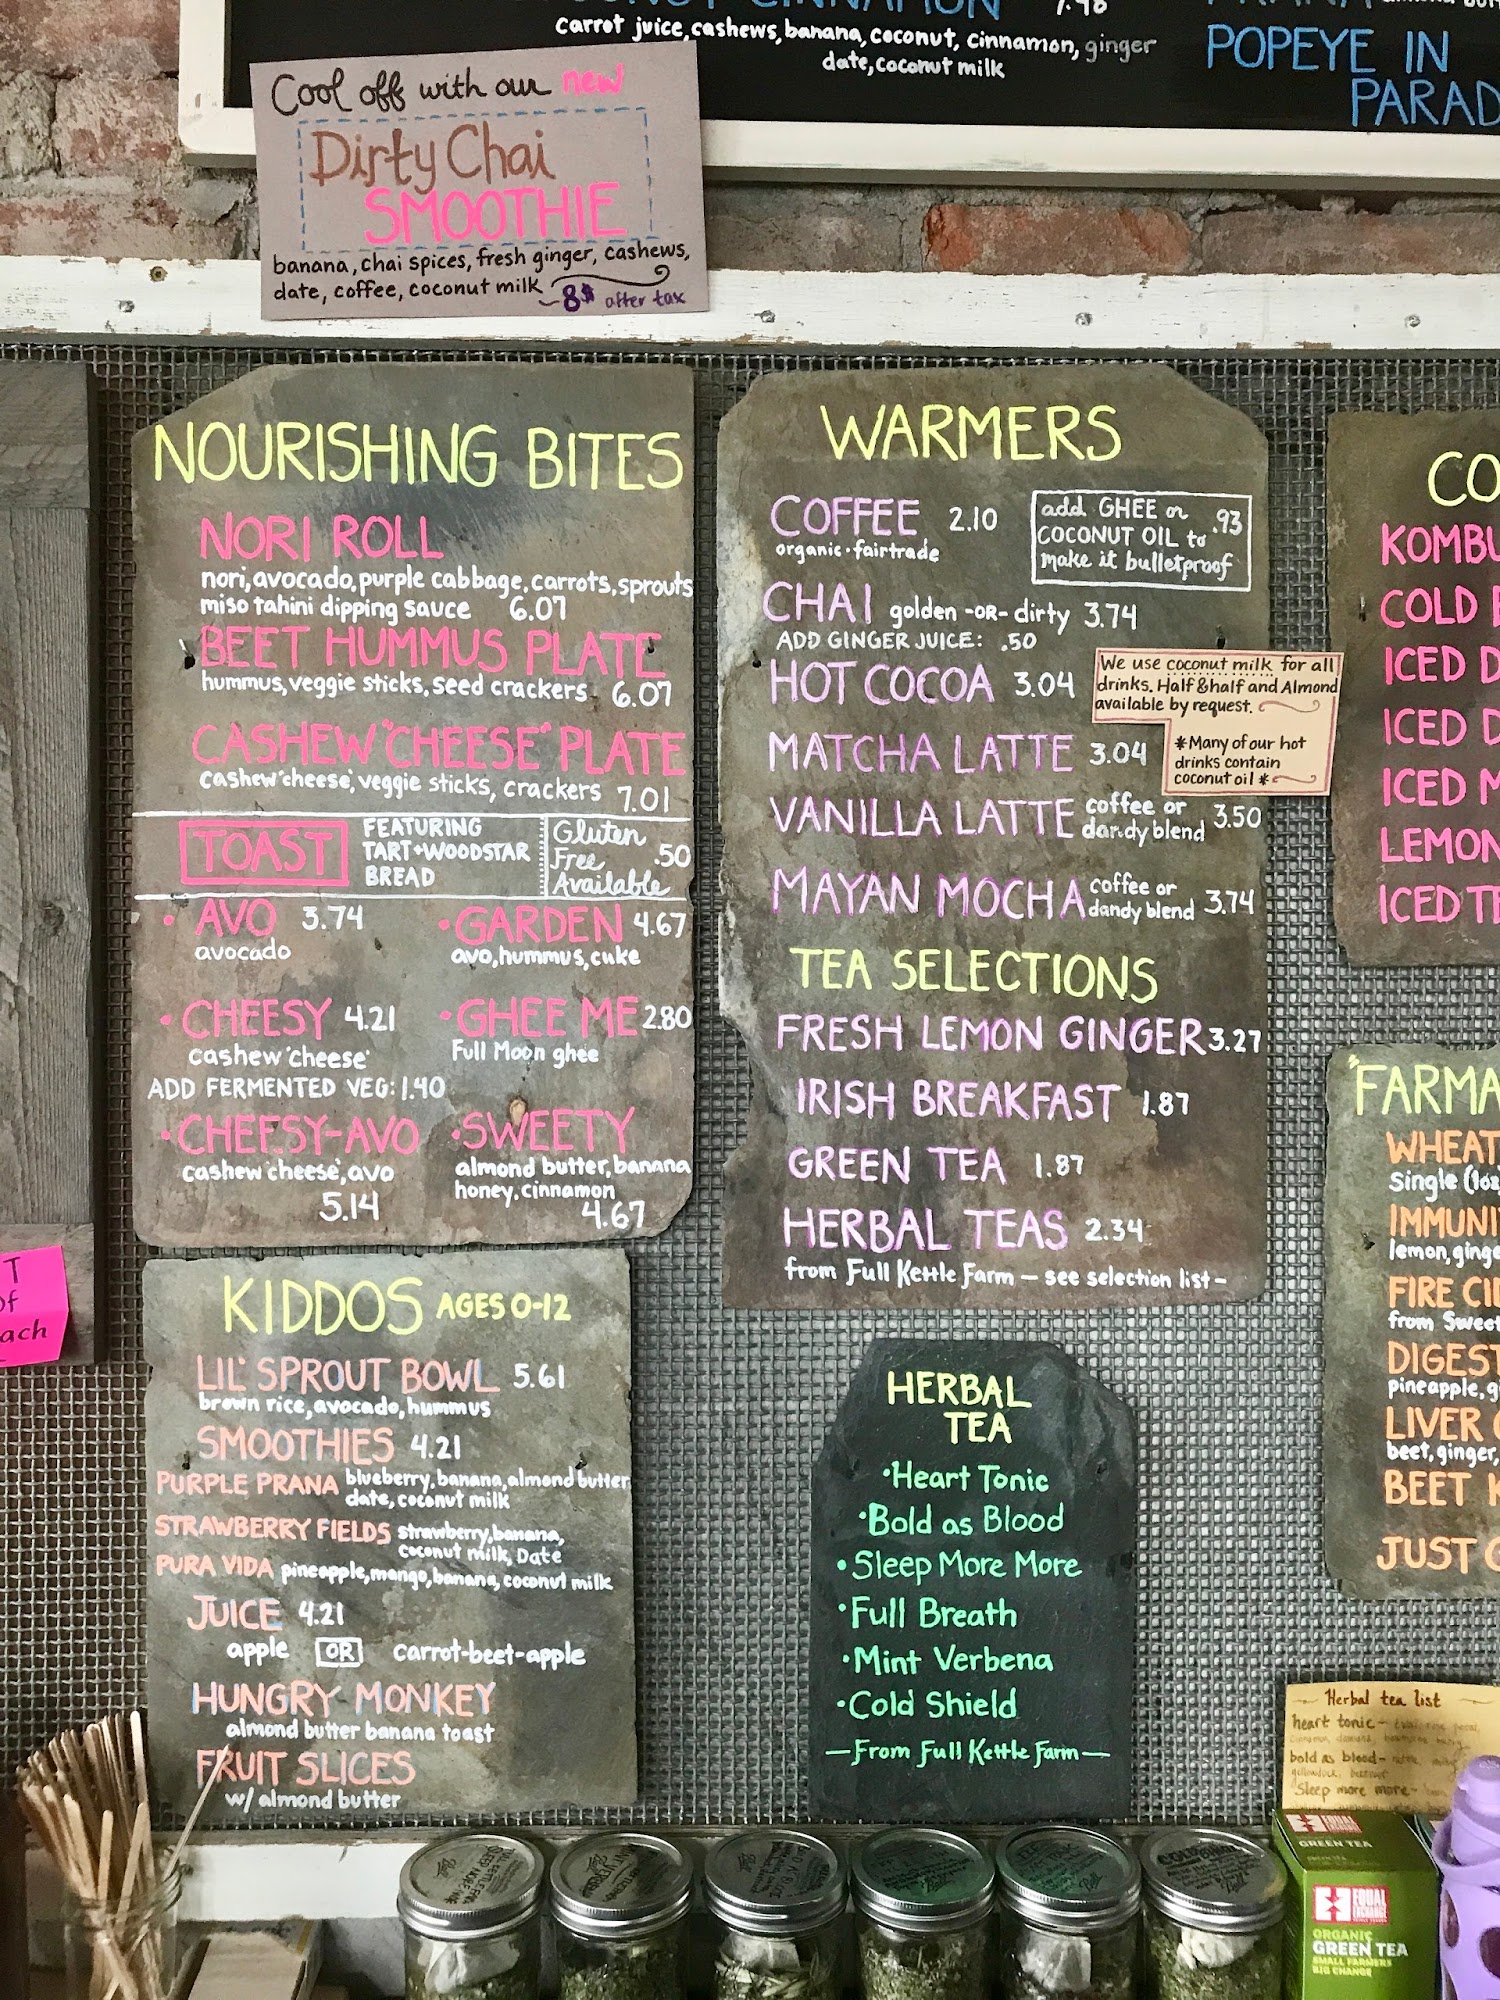 CINNAMON 7.48
carrot juice, cashews, banana, coconut, cinnamon, ginger
date, coconut milk
POPEYE IN
PARAD
Cool off with our new
Dirty Chai
SMOOTHIE
banana, chai spices, fresh ginger, cashews,
date, coffee, coconut milk
8$ after tax
NOURISHING BITES
NORI ROLL
nori, avocado, purple cabbage, carrots, sprouts
miso tahini dipping sauce 6.07
BEET HUMMUS PLATE
hummus, veggie sticks, seed crackers 6.07
CASHEW "CHEESE" PLATE
cashew "cheese", veggie sticks, crackers 7.01
TOAST
FEATURING
TART+WOODSTAR
BREAD
Gluten
Free .50
Available
• AVO 3.74
avocado
• GARDEN 4.67
avo, hummus, cuke
• CHEESY 4.21
cashew 'cheese'
• GHEE ME 2.80
Full Moon ghee
ADD FERMENTED VEG: 1.40
• CHEESY-AVO
cashew 'cheese', avo
5.14
• SWEETY
almond butter, banana
honey, cinnamon
4.67
KIDDOS AGES 0-12
LIL' SPROUT BOWL 5.61
brown rice, avocado, hummus
SMOOTHIES 4.21
PURPLE PRANA blueberry, banana, almond butter,
date, coconut milk
STRAWBERRY FIELDS strawberry, banana,
coconut milk, Date
PURA VIDA pineapple, mango, banana, coconut milk
JUICE 4.21
apple OR carrot-beet-apple
HUNGRY MONKEY
almond butter banana toast
FRUIT SLICES
w/ almond butter
WARMERS
COFFEE 2.10
organic • fairtrade
add GHEE or .93
COCONUT OIL to
make it bulletproof
CHAI golden -OR- dirty 3.74
ADD GINGER JUICE: .50
HOT COCOA 3.04
We use coconut milk for all
drinks. Half & half and Almond
available by request.
*Many of our hot
drinks contain
coconut oil *
MATCHA LATTE 3.04
VANILLA LATTE coffee or
dandy blend 3.50
MAYAN MOCHA coffee or
dandy blend 3.74
TEA SELECTIONS
FRESH LEMON GINGER 3.27
IRISH BREAKFAST 1.87
GREEN TEA 1.87
HERBAL TEAS 2.34
from Full Kettle Farm - see selection list -
HERBAL
TEA
• Heart Tonic
• Bold as Blood
• Sleep More More
• Full Breath
• Mint Verbena
• Cold Shield
—From Full Kettle Farm—
CO
KOMBU
COLD
ICED D
ICED D
ICED M
LEMON
ICED T
"FARMA
WHEAT
single (1oz
IMMUNI
lemon, ginge
FIRE CI
from Sweet
DIGEST
pineapple, g
LIVER
beet, ginger,
BEET K
JUST
T
of
ach
Herbal tea list
heart tonic -
bold as blood -
Sleep more more -
GREEN TEA
EQUAL
EXCHANGE
ORGANIC
GREEN TEA
SMALL FARMERS
BIG CHANGE